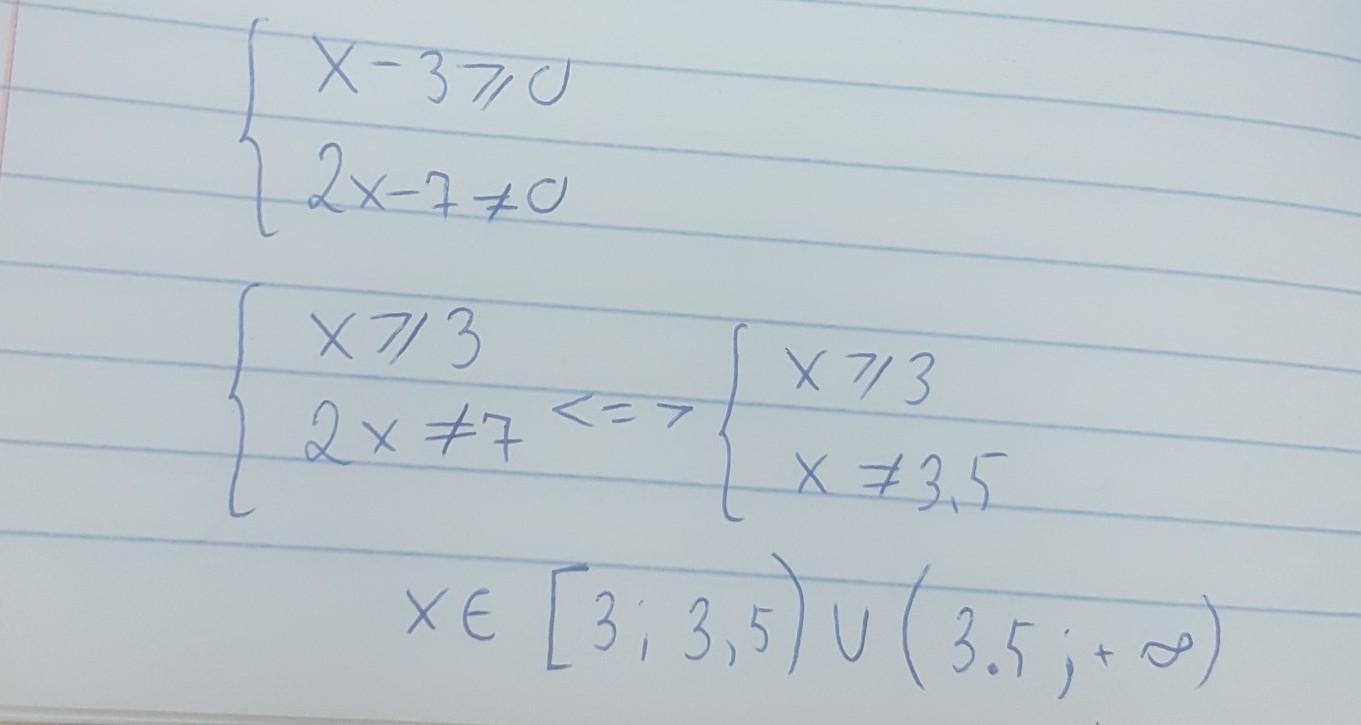 x-3⩾0
2x-7≠0
x⩾3
2x≠7 <=>
x⩾3
x≠3,5
x∈ [3; 3,5) ∪ (3.5 ;+∞)